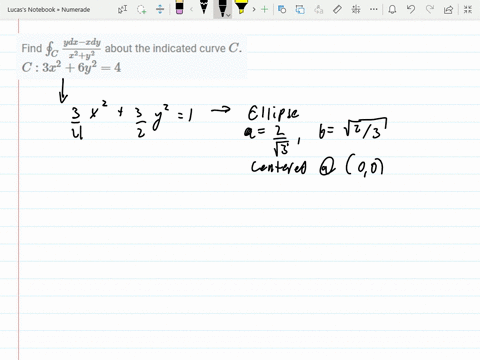 Lucas's Notebook • Numerade
Find ∮_C (ydx−xdy)/(x²+y²) about the indicated curve C.
C : 3x² + 6y² = 4
3/4 x² + 3/2 y² = 1 → Ellipse
a = 2/√3, b = √2/3
centered @ (0,0)